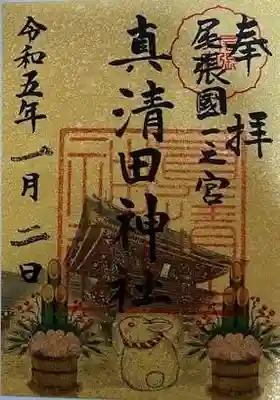 奉拝
尾張國一之宮
真清田神社
令和五年一月二日